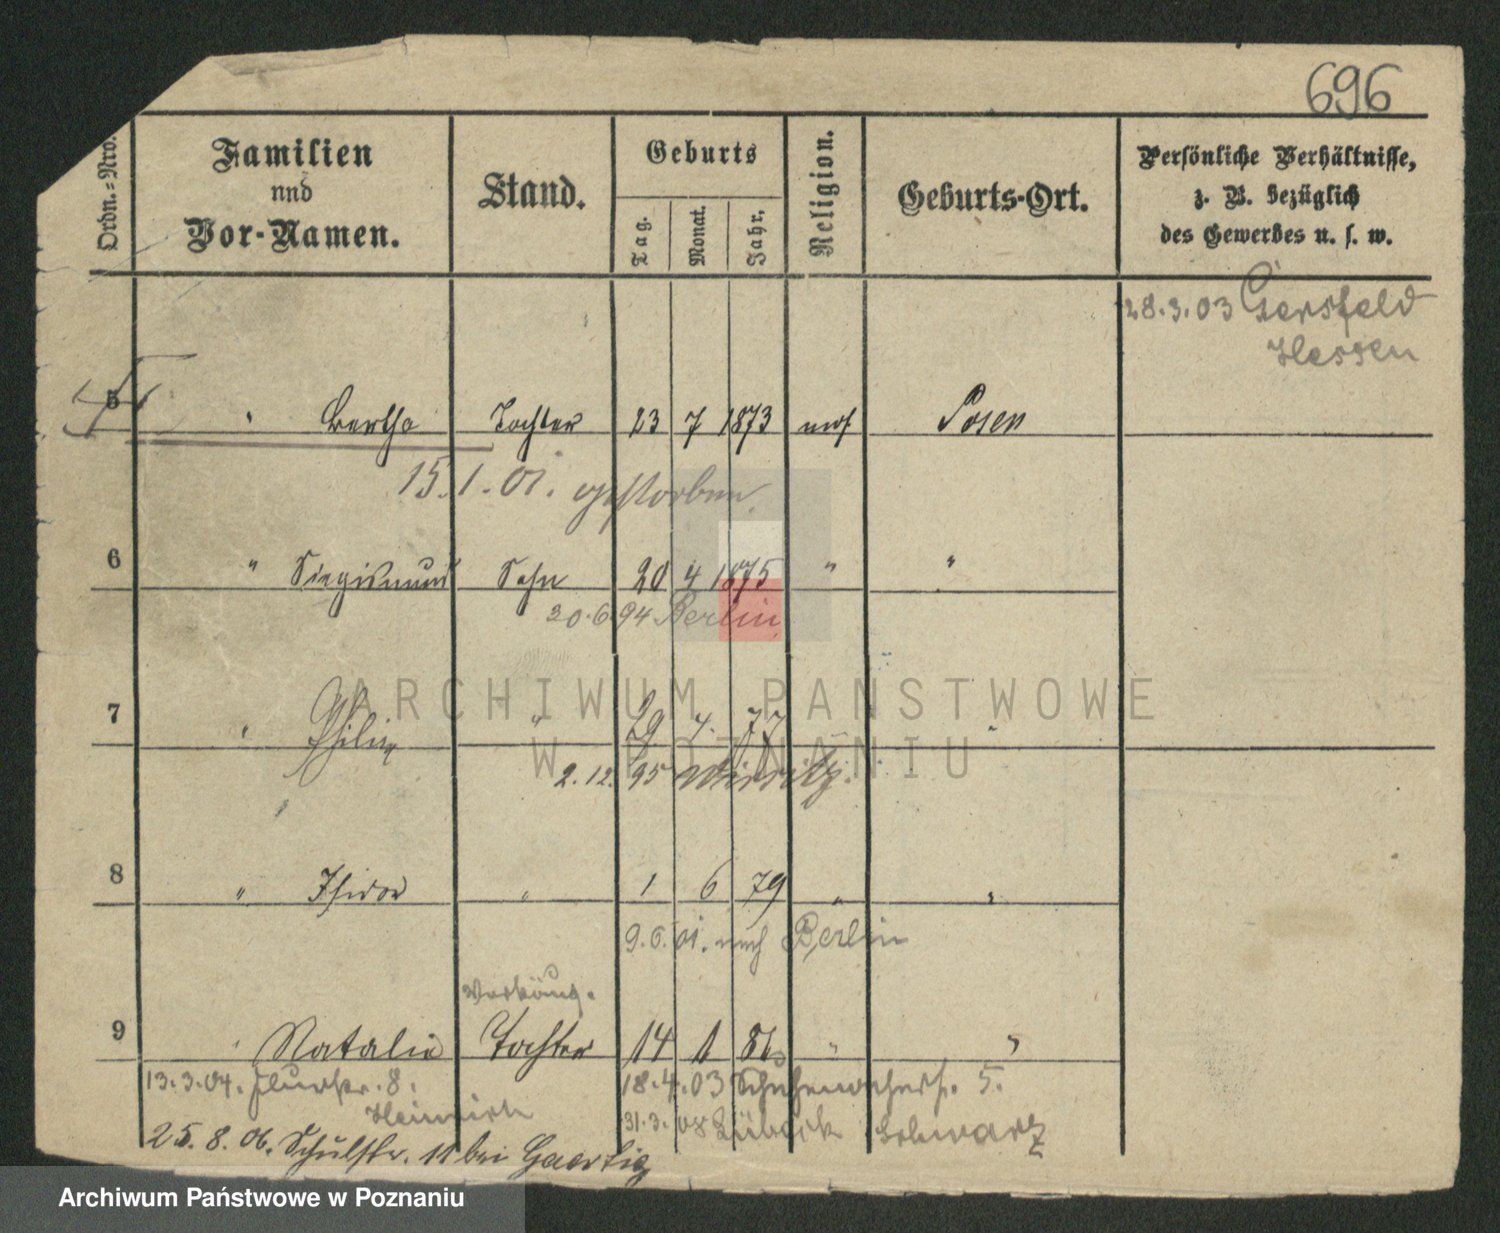 696
Ordn.=Nro.
Familien
und
Vor-Namen.
Stand.
Geburts
Tag.
Monat.
Jahr.
Religion.
Geburts-Ort.
Persönliche Verhältnisse,
z. B. bezüglich
des Gewerbes u. s. w.
28.3.03 Gersfeld
Hessen
5 " Bertha Tochter 23 7 1873 mos Posen
15.1.01. gestorben
6 " Siegismund Sohn 20 4 1875 " "
20.6.94 Berlin
7 " " 29 4. 77 "
2.12.95
8 " Isidor " 1 6 79 " "
9.6.01. nach Berlin
Verkäuf.
9 " Natalie Tochter 14 1 86 " "
13.3.04. Flurstr. 8. 18.4.03 5.
Heinrich 31.3.08 Lübeck Schwarz
25.8.06. Schulstr. 11 bei
ARCHIWUM PAŃSTWOWE
W POZNANIU
Archiwum Państwowe w Poznaniu